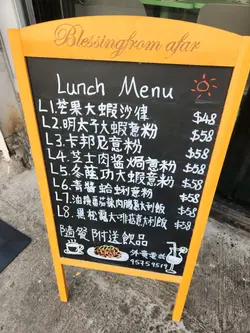 Blessingfrom afar
Lunch Menu
L1.芒果大蝦沙律 $48
L2.明太子大蝦意粉 $58
L3.卡邦尼意粉 $58
L4.芝士肉醬焗意粉 $58
L5.冬蔭功大蝦意粉 $58
L6.青醬蛤蜊意粉 $58
L7.油鴨 腸意大利飯 $58
L8.黑松露大啡菇意大利飯 $58
附送飲品
外賣電話
95759519